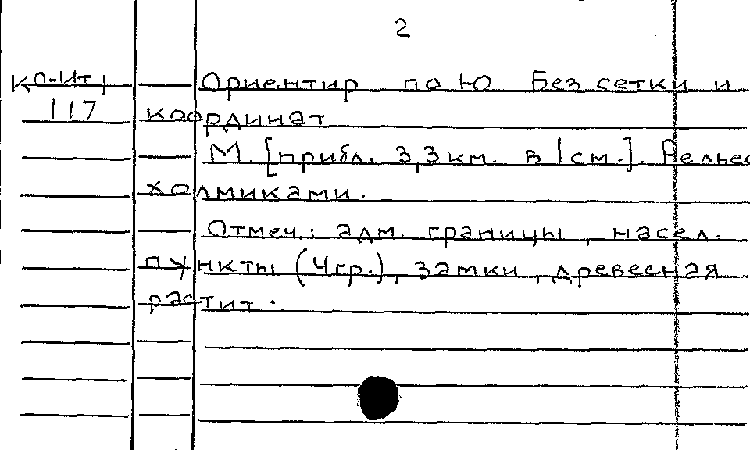 2
К п-Ит
117
Ориентир по Ю Без сетки и
координат
М. [прибл. 3,3 км. в 1 см.]. Рельеф
холмиками.
Отмеч.: адм. границы, насел.
пункты (4 гр.), замки, древесная
растит.